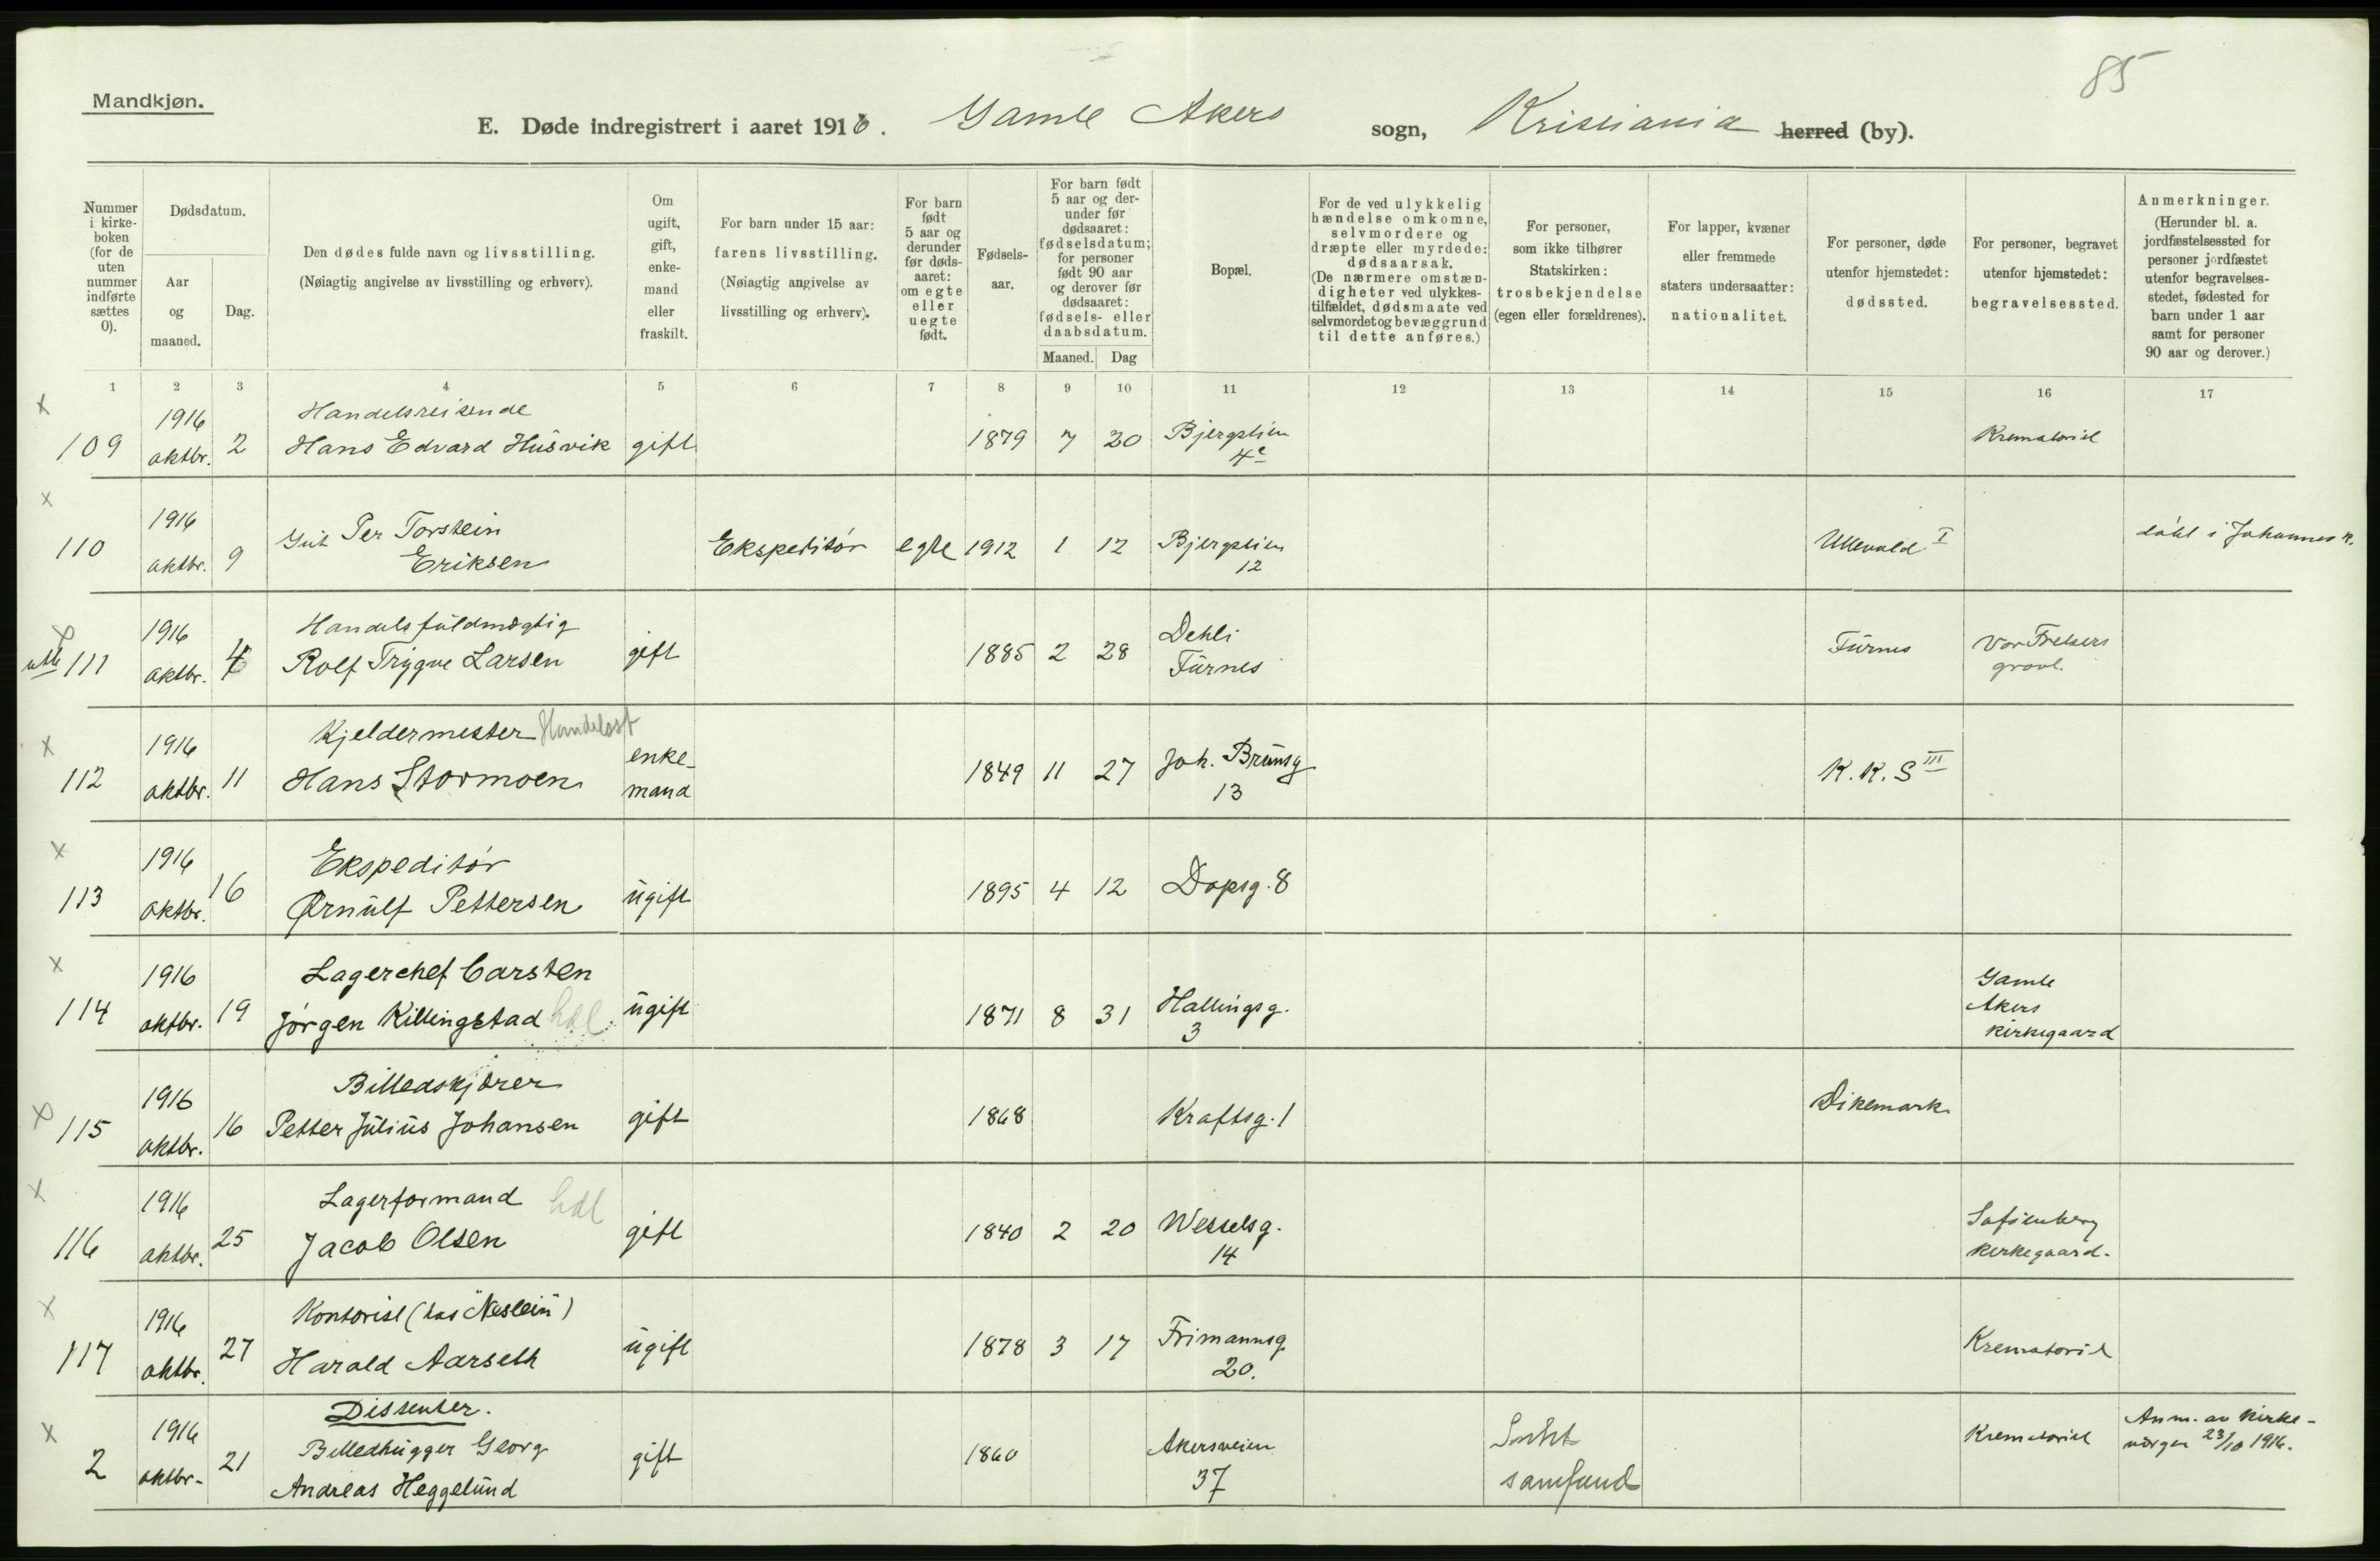 85
Mandkjøn.
E. Døde indregistrert i aaret 1916. Gamle Akers sogn, Kristiania herred (by).
Nummer i kirke-boken (for de uten nummer indførte sættes 0).
Dødsdatum.
Aar og maaned.
Dag.
Den dødes fulde navn og livsstilling.
(Nøiagtig angivelse av livsstilling og erhverv).
Om ugift, gift, enke-mand eller fraskilt.
For barn under 15 aar: farens livsstilling. (Nøiagtig angivelse av livsstilling og erhverv).
For barn født 5 aar og derunder før døds-aaret: om egte eller uegte født.
Fødsels-aar.
For barn født 5 aar og der-under før dødsaaret: fødselsdatum; for personer født 90 aar og derover før dødsaaret: fødsels- eller daabsdatum.
Maaned. Dag
Bopæl.
For de ved ulykkelig hændelse omkomne, selvmordere og dræpte eller myrdede: dødsaarsak. (De nærmere omstæn-digheter ved ulykkes-tilfældet, dødsmaate ved selvmordet og bevæggrund til dette anføres.)
For personer, som ikke tilhører Statskirken: trosbekjendelse (egen eller forældrenes).
For lapper, kvæner eller fremmede staters undersaatter: nationalitet.
For personer, døde utenfor hjemstedet: dødssted.
For personer, begravet utenfor hjemstedet: begravelsessted.
Anmerkninger. (Herunder bl. a. jordfæstelsessted for personer jordfæstet utenfor begravelses-stedet, fødested for barn under 1 aar samt for personer 90 aar og derover.)
1 2 3 4 5 6 7 8 9 10 11 12 13 14 15 16 17
x 109 1916 oktbr. 2 Handelsreisende
Hans Edvard Husvik gift 1879 7 20 Bjergstien 4c Krematoriet
x 110 1916 oktbr. 9 Gut Per Torstein
Eriksen Ekspeditør egte 1912 1 12 Bjergstien 12 Ullevold I i Johannes k.
x 111 1916 oktbr. 4 Handelsfuldmægtig
Rolf Trygve Larsen gift 1885 2 28 Dehli Furnes Furnes Vor Frelsers gravl.
x 112 1916 oktbr. 11 Kjeldermester
Hans Stormoen enke-mand 1849 11 27 Joh. Brunsg 13 K.K.S III
x 113 1916 oktbr. 16 Ekspeditør
Ørnulf Pettersen ugift 1895 4 12 Dopsg. 8
x 114 1916 oktbr. 19 Lagerchef Carsten
Jørgen Killingstad hdl. ugift 1871 8 31 Hallingsg. 3 Gamle Akers kirkegaard
x 115 1916 oktbr. 16 Billedskjærer
Petter Julius Johansen gift 1868 Kraftsg. 1 Dikemark
x 116 1916 oktbr. 25 Lagerformand hdl
Jacob Olsen gift 1840 2 20 Wesselsg. 14 Sofienberg kirkegaard.
x 117 1916 oktbr. 27 Kontorist (hos "Neslein")
Harald Aarseth ugift 1878 3 17 Frimannsg. 20. Krematoriet
x 2 1916 oktbr- 21 Dissenter.
Billedhugger Georg
Andreas Heggelund gift 1860 Akersveien 37 samfund Krematoriet Anm. av kirke-værgen 23/10 1916.